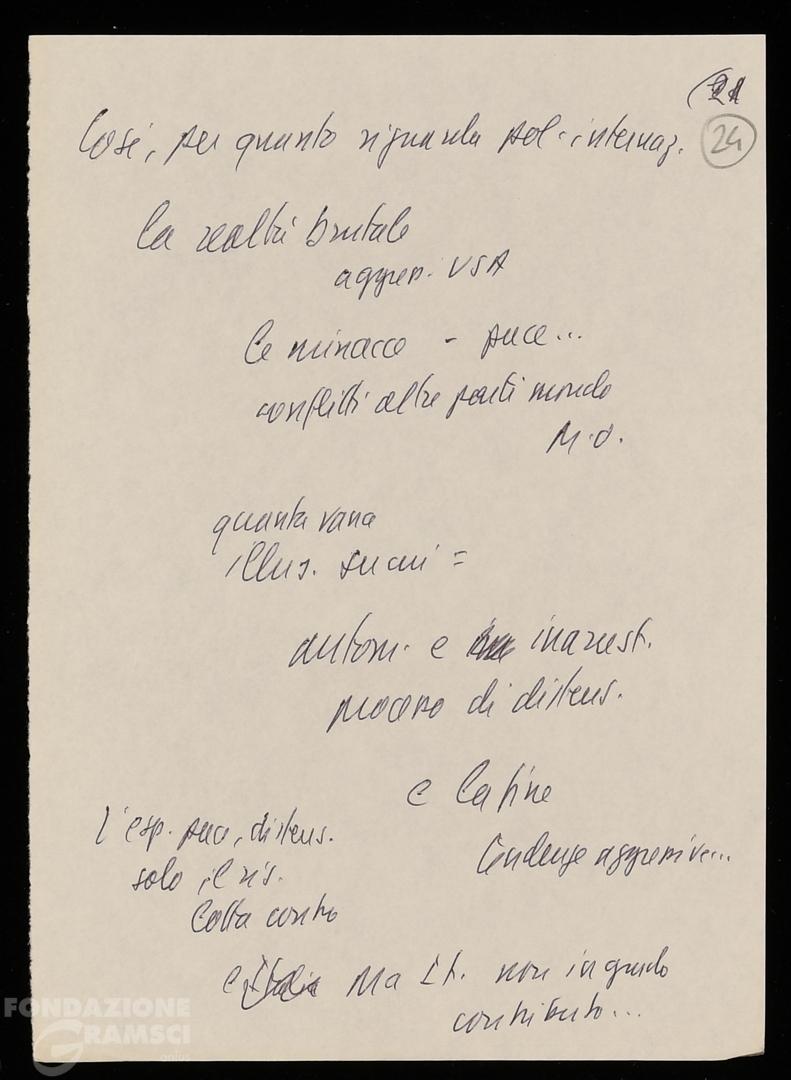 24
Così, per quanto riguarda pol. internaz.
la realtà brutale
aggress. USA
le minacce - pace...
conflitti altre parti mondo
M.O.
quanta vana
illus. su cui =
autom. e inarrest.
processo di distens.
e la fine
tendenze aggressive...
l'esp. pace, distens.
solo il ris.
lotta contro
e Ma It. non in grado
contributo...
FONDAZIONE
GRAMSCI
onlus